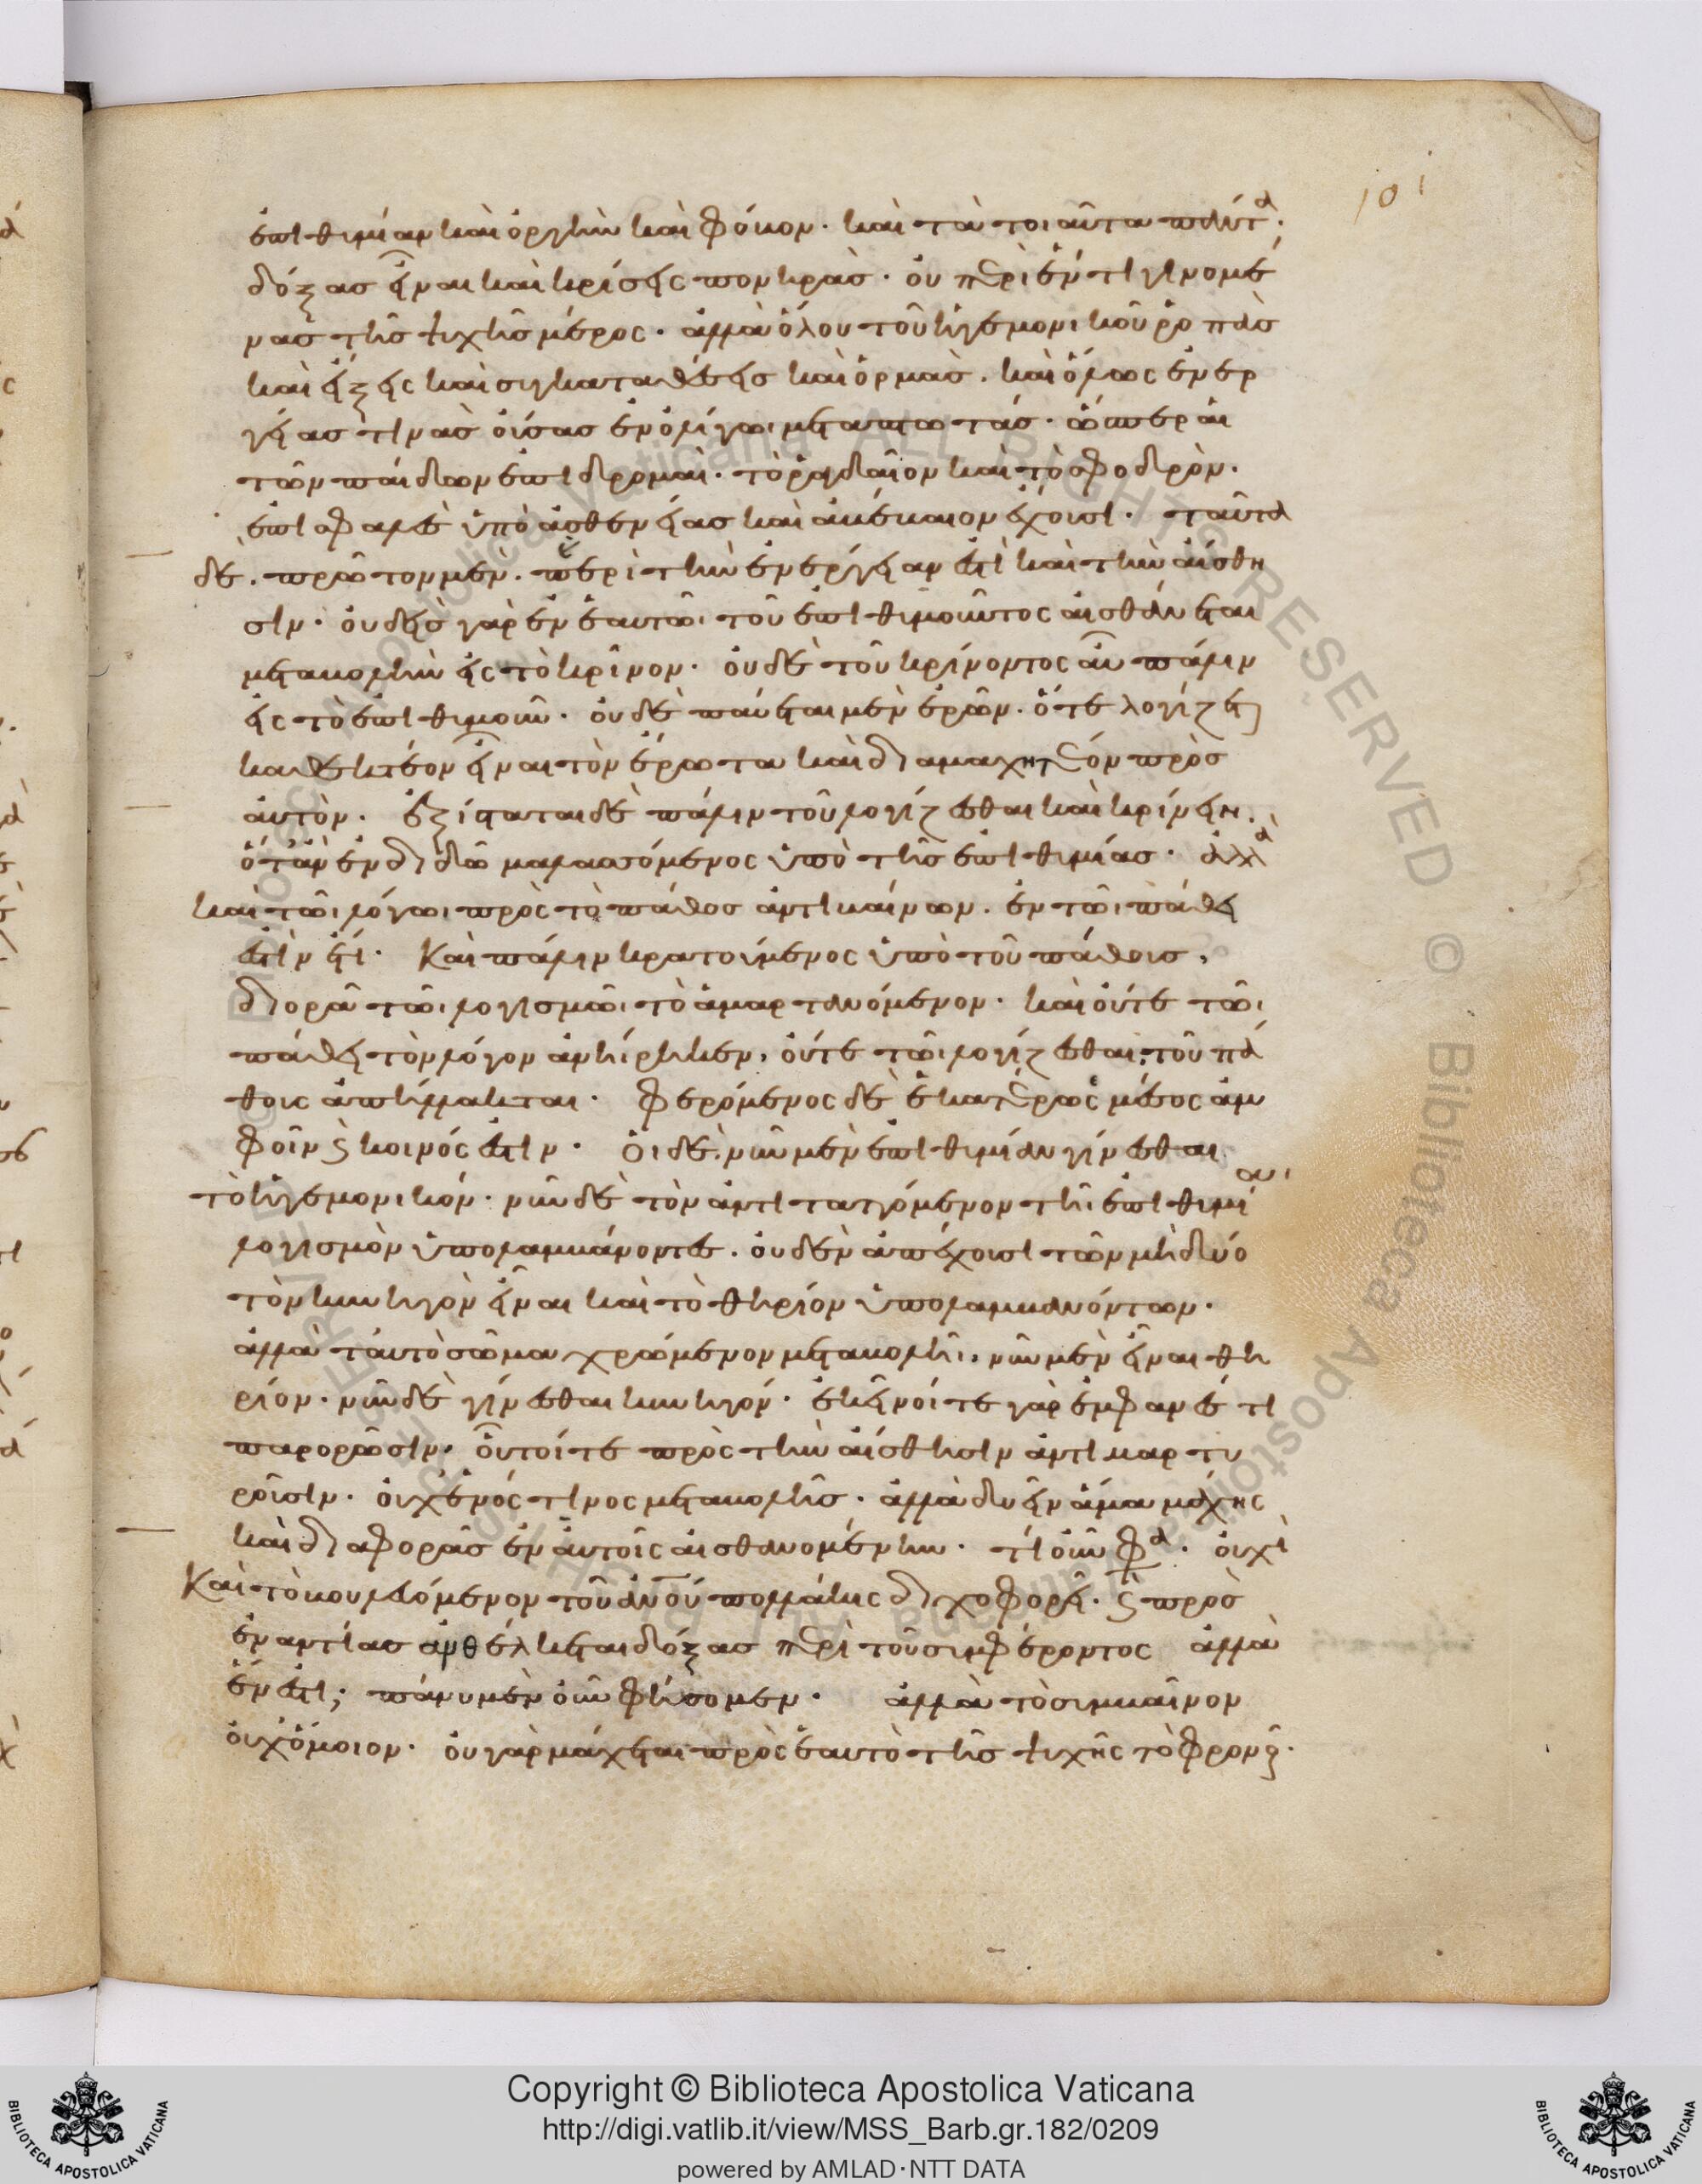 101
ἐπιθυμίαν καὶ ὀργὴν καὶ φόβον· καὶ τὰ τοιαῦτα πάντα·
δόξας εἶναι καὶ κρίσεις πονηρὰς· οὐ περὶ ἕν τι γινομέ
νας τῆς ψυχῆς μέρος· ἀλλὰ ὅλου τοῦ ἡγεμονικοῦ ῥοπὰς
καὶ εἴξεις καὶ συγκαταθέσεις καὶ ὁρμὰς. καὶ ὅλως ἐνερ
γείας τινὰς οὔσας ἐν ὀλίγωι μεταπτωτάς· ὥσπερ αἱ
τῶν παίδων ἐπιδρομαὶ· τὸ ῥαγδαῖον καὶ τὸ σφοδρὸν·
ἐπισφαλὲ ὑπὸ ἀσθενείας καὶ ἀβέβαιον ἔχουσι· ταῦτα
δὲ. πρῶτον μὲν. περὶ τὴν ἐνέργειαν ἐστὶ καὶ τὴν αἴσθη
σιν· οὐδεὶς γὰρ ἐν ἑαυτῶι τοῦ ἐπιθυμοῦντος αἰσθάνεται
μεταβολὴν εἰς τὸ κρῖνον· οὐδὲ τοῦ κρίνοντος αὖ πάλιν
εἰς τὸ ἐπιθυμοῦν· οὐδὲ παύεται μὲν ἐρῶν. ὅτε λογίζεται
καθεκτέον εἶναι τὸν ἔρωτα καὶ διαμαχητέον πρὸς
αὐτὸν· ἐξίσταται δὲ πάλιν τοῦ λογίζεσθαι καὶ κρίνειν.
ὅταν ἐνδιδῶ μαλασσόμενος ὑπὸ τῆς ἐπιθυμίας· ἀλλὰ
καὶ τῶι λόγωι πρὸς τὸ πάθος ἀντιβαίνων. ἐν τῶι πάθει
ἐστὶν ἔτι· Καὶ πάλιν κρατούμενος ὑπὸ τοῦ πάθους,
διορᾶ τῶι λογισμῶι τὸ ἁμαρτανόμενον· καὶ οὔτε τῶι
πάθει τὸν λόγον ἀνήρηκεν, οὔτε τῶι λογίζεσθαι, τοῦ πά
θους ἀπήλλακται· φερόμενος δὲ ἑκατέρως μέσος ἀμ
φοῖν ϗ κοινός ἐστιν· οἱ δὲ. νῦν μὲν ἐπιθυμίαν γίνεσθαι
τὸ ἡγεμονικόν· νῦν δὲ τὸν ἀντιταττόμενον τῆι ἐπιθυμίαι
λογισμὸν ὑπολαμβάνοντε. οὐδὲν ἀπέχουσι τῶν μὴ δύο
τὸν κυνηγὸν εἶναι καὶ τὸ θηρίον ὑπολαμβανόντων·
ἀλλὰ ταὐτὸ σῶμα χρώμενον μεταβολῆι, νῦν μὲν εἶναι θη
ρίον· νῦν δὲ γίνεσθαι κυνηγόν· ἐκεῖνοί τε γὰρ ἐμφανέ τι
παρορῶσιν· οὗτοί τε πρὸς τὴν αἴσθησιν ἀντιμαρτυ
ροῦσιν. οὐχ ἑνός τινος μεταβολῆς· ἀλλὰ δυεῖν ἅμα μάχης
καὶ διαφορᾶς ἐν αὐτοῖς αἰσθανομένην· τί οὖν φα· οὐχὶ
Καὶ τὸ βουλευόμενον τοῦ ἀνου πολλάκις διχοφορεῖ· ϗ πρὸς
ἐναντίας ἀνθέλκεται δόξας περὶ τοῦ συμφέροντος ἀλλὰ
ἕν ἐστι; πάνυ μὲν οὖν φήσομεν· ἀλλὰ τὸ συμβαῖνον
οὐχ ὅμοιον· οὐ γὰρ μάχεται πρὸς ἑαυτὸ τῆς ψυχῆς τὸ φρονοῦ·
Copyright © Biblioteca Apostolica Vaticana
http://digi.vatlib.it/view/MSS_Barb.gr.182/0209
powered by AMLAD·NTT DATA